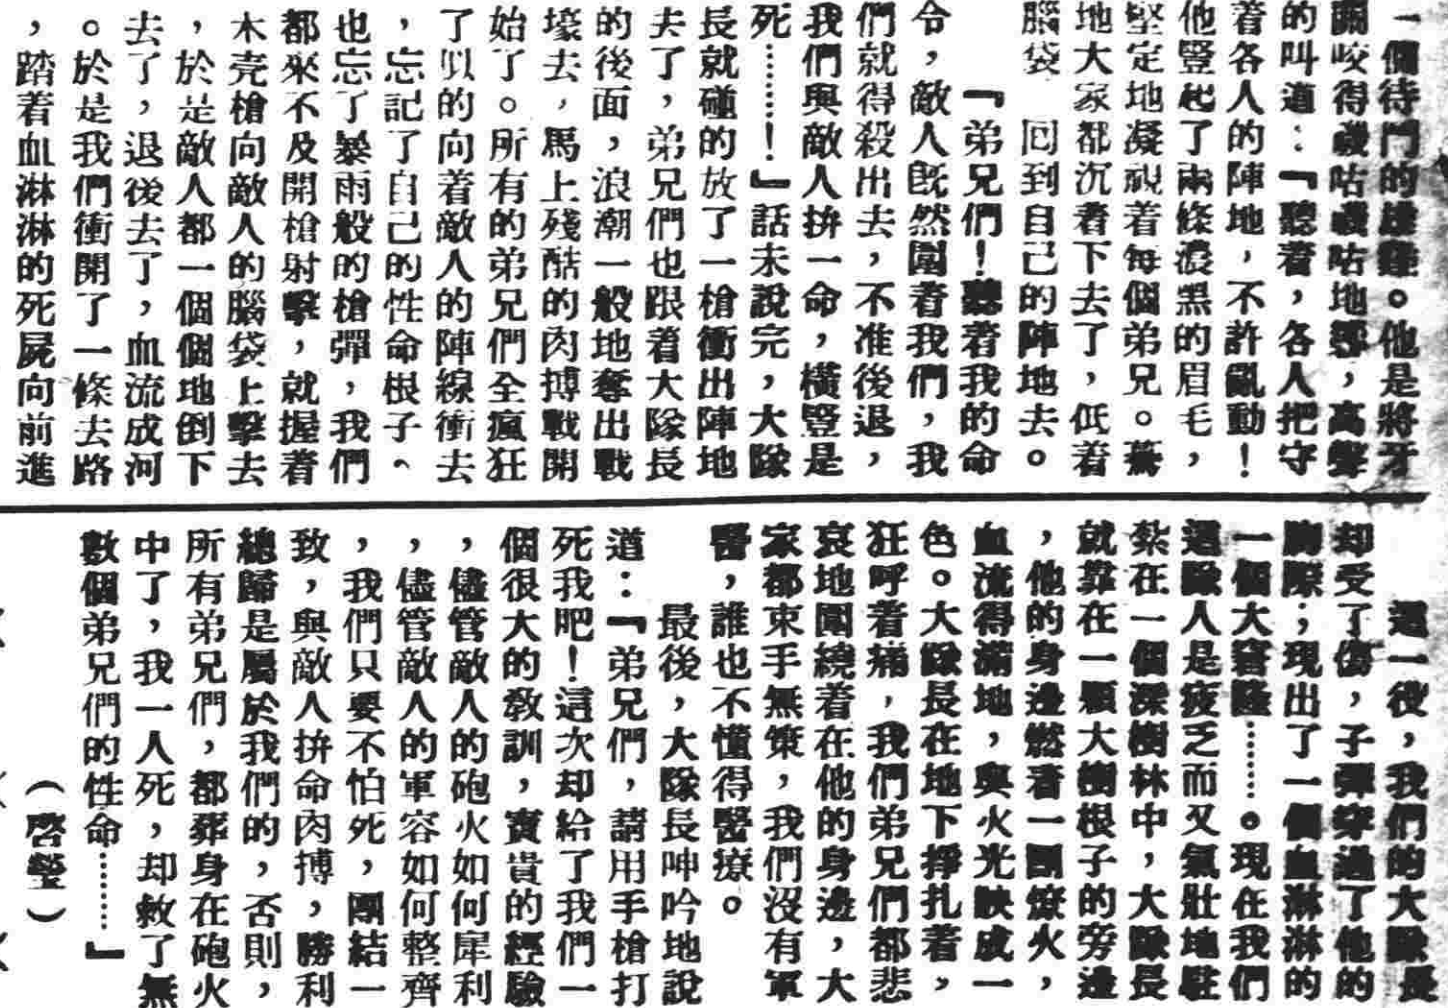 一個待鬥的雄雞。他是將牙
關咬得嘰咕嘰咕地響，高聲
的叫道：『聽着，各人把守
着各人的陣地，不許亂動！
他豎起了兩條濃黑的眉毛，
堅定地凝視着每個弟兄。驀
地大家都沉着下去了，低着
腦袋　回到自己的陣地去。
『弟兄們！聽着我的命
令，敵人既然圍着我們，我
們就得殺出去，不准後退，
我們與敵人拚一命，橫豎是
死……！』話未說完，大隊
長就碰的放了一槍衝出陣地
去了，弟兄們也跟着大隊長
的後面，浪潮一般地奪出戰
壕去，馬上殘酷的肉搏戰開
始了。所有的弟兄們全瘋狂
了似的向着敵人的陣線衝去
，忘記了自己的性命根子、
也忘了暴雨般的槍彈，我們
都來不及開槍射擊，就握着
木壳槍向敵人的腦袋上擊去
，於是敵人都一個個地倒下
去了，退後去了，血流成河
。於是我們衝開了一條去路
，踏着血淋淋的死屍向前進
這一役，我們的大隊長
却受了傷，子彈穿過了他的
胸際；現出了一個血淋淋的
一個大窟窿……。現在我們
這隊人是疲乏而又氣壯地駐
紮在一個深樹林中，大隊長
就靠在一顆大樹根子的旁邊
，他的身邊燃着一團燎火，
血流得滿地，與火光映成一
色。大隊長在地下掙扎着，
狂呼着痛，我們弟兄們都悲
哀地圍繞着在他的身邊，大
家都束手無策，我們沒有軍
醫，誰也不懂得醫療。
最後，大隊長呻吟地說
道：『弟兄們，請用手槍打
死我吧！這次却給了我們一
個很大的教訓，寶貴的經驗
，儘管敵人的砲火如何犀利
，儘管敵人的軍容如何整齊
，我們只要不怕死，團結一
致，與敵人拚命肉搏，勝利
總歸是屬於我們的，否則，
所有弟兄們，都葬身在砲火
中了，我一人死，却救了無
數個弟兄們的性命……』
（啓瑩）